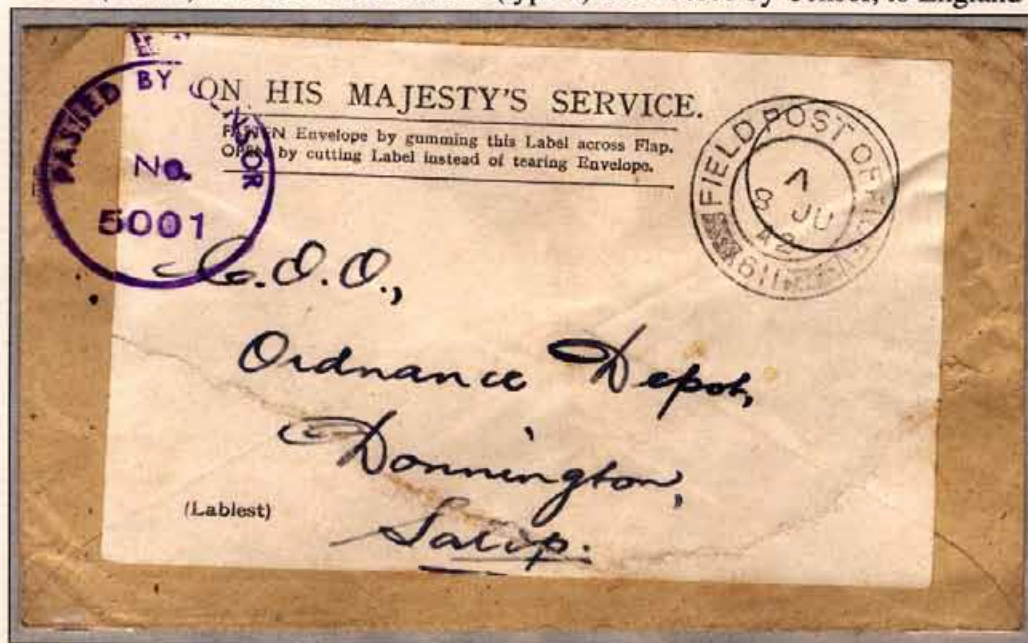 by Censor, to England
PASSED BY CENSOR
No.
5001
ON HIS MAJESTY'S SERVICE.
FASTEN Envelope by gumming this Label across Flap.
OPEN by cutting Label instead of tearing Envelope.
FIELD POST OFFICE
A
8 JU
42
C.O.O.,
Ordnance Depot,
Donnington,
(Lablest)
Salop.